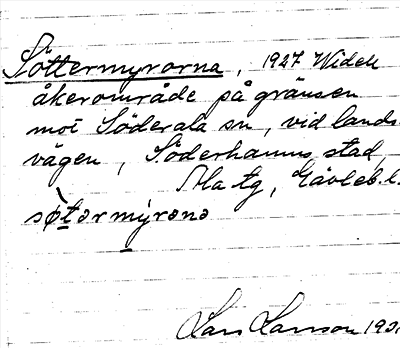 Söttermyrorna, 1927 Widell
åkerområde på gränsen
mot Söderala sn, vid lands
vägen, Söderhamns stad,
Ma tg, Gävleb. l.
søtərmyrənə
Lars Larsson 193